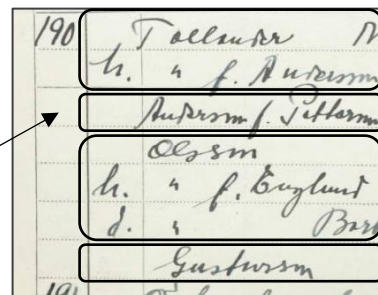 190 Tollander
h. " f. Andersson
Andersson f. Petterson
Olsson
h. " f. Englund
d. "
Gustavsson
191